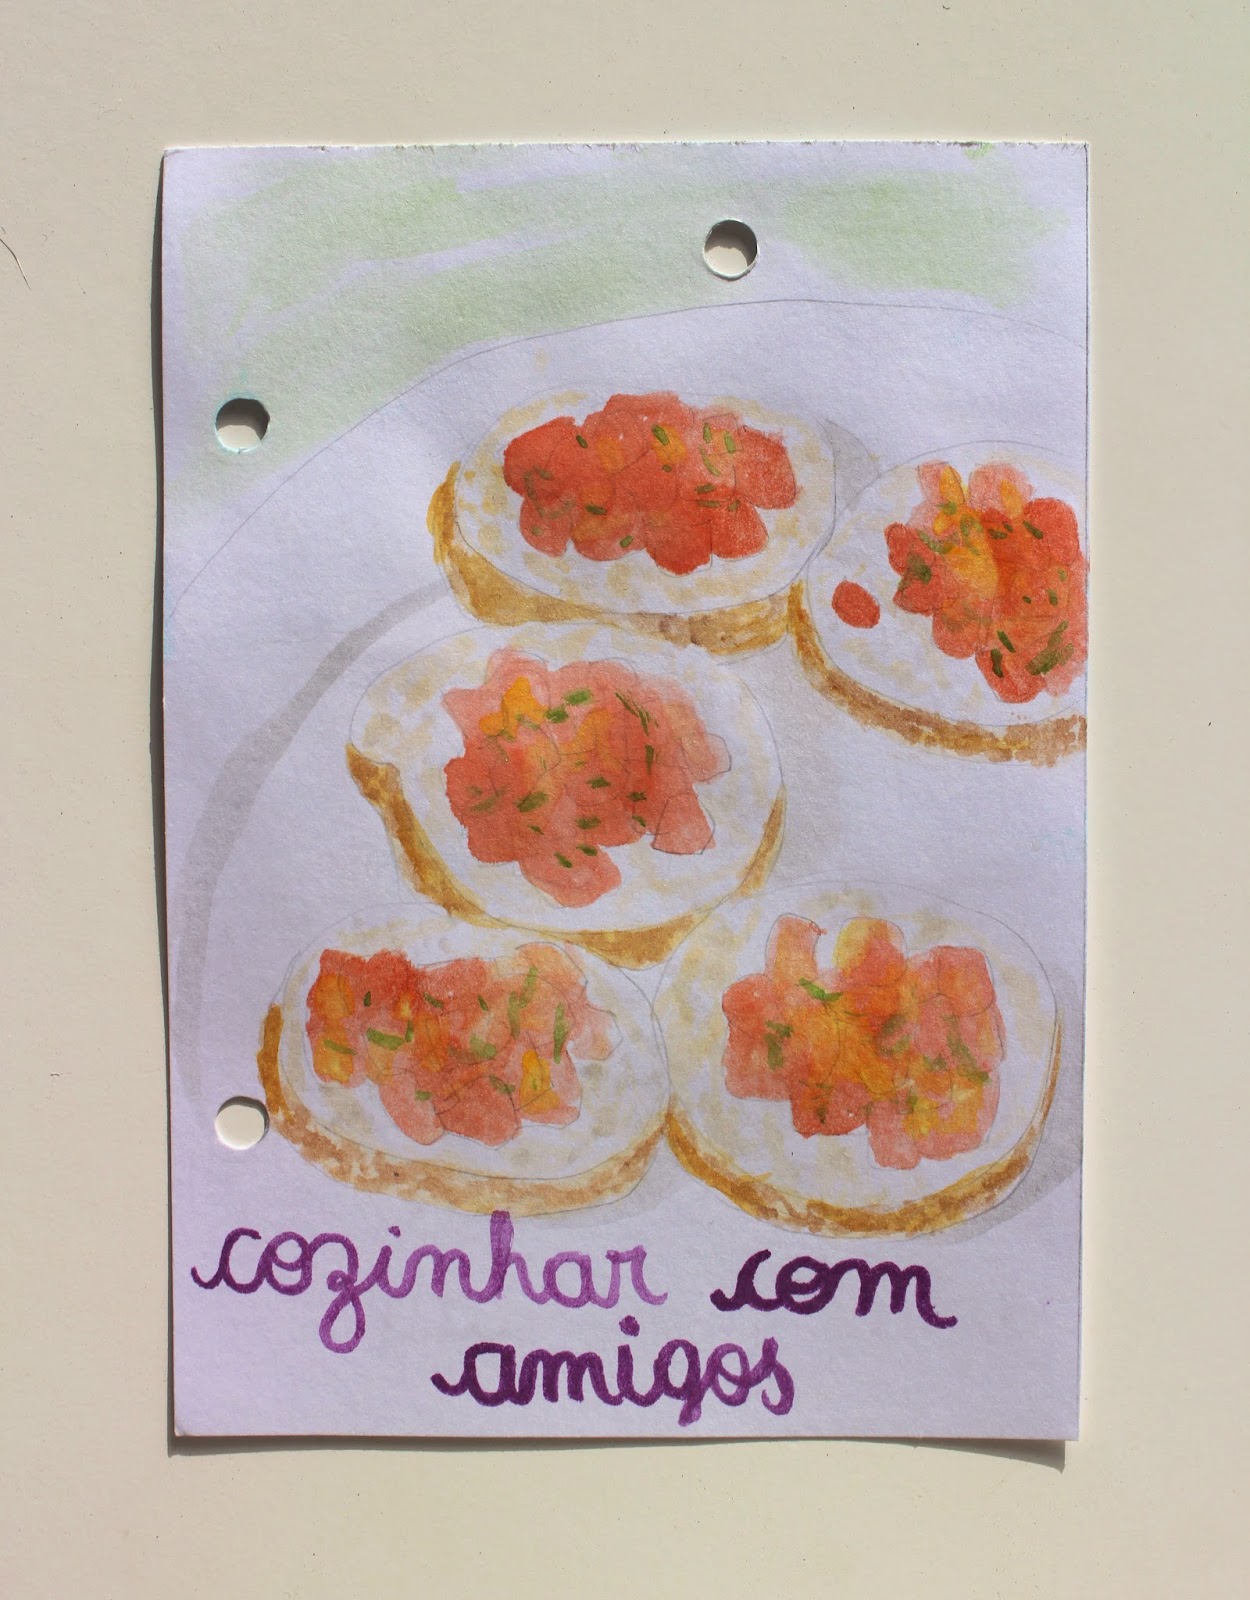 cozinhar com
amigos